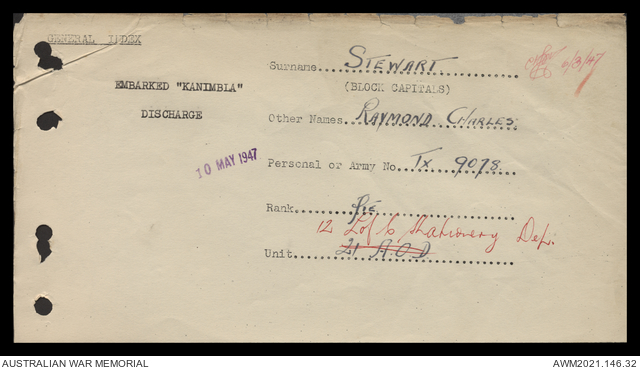 GENERAL INDEX
Surname STEWART.
6/3/47
EMBARKED "KANIMBLA"
(BLOCK CAPITALS)
DISCHARGE
Other Names RAYMOND CHARLES.
10 MAY 1947
Personal or Army No. TX 9078
Rank Pte
12 L of C Stationery Dep.
Unit 21 A.O.D
AUSTRALIAN WAR MEMORIAL
AWM2021.146.32